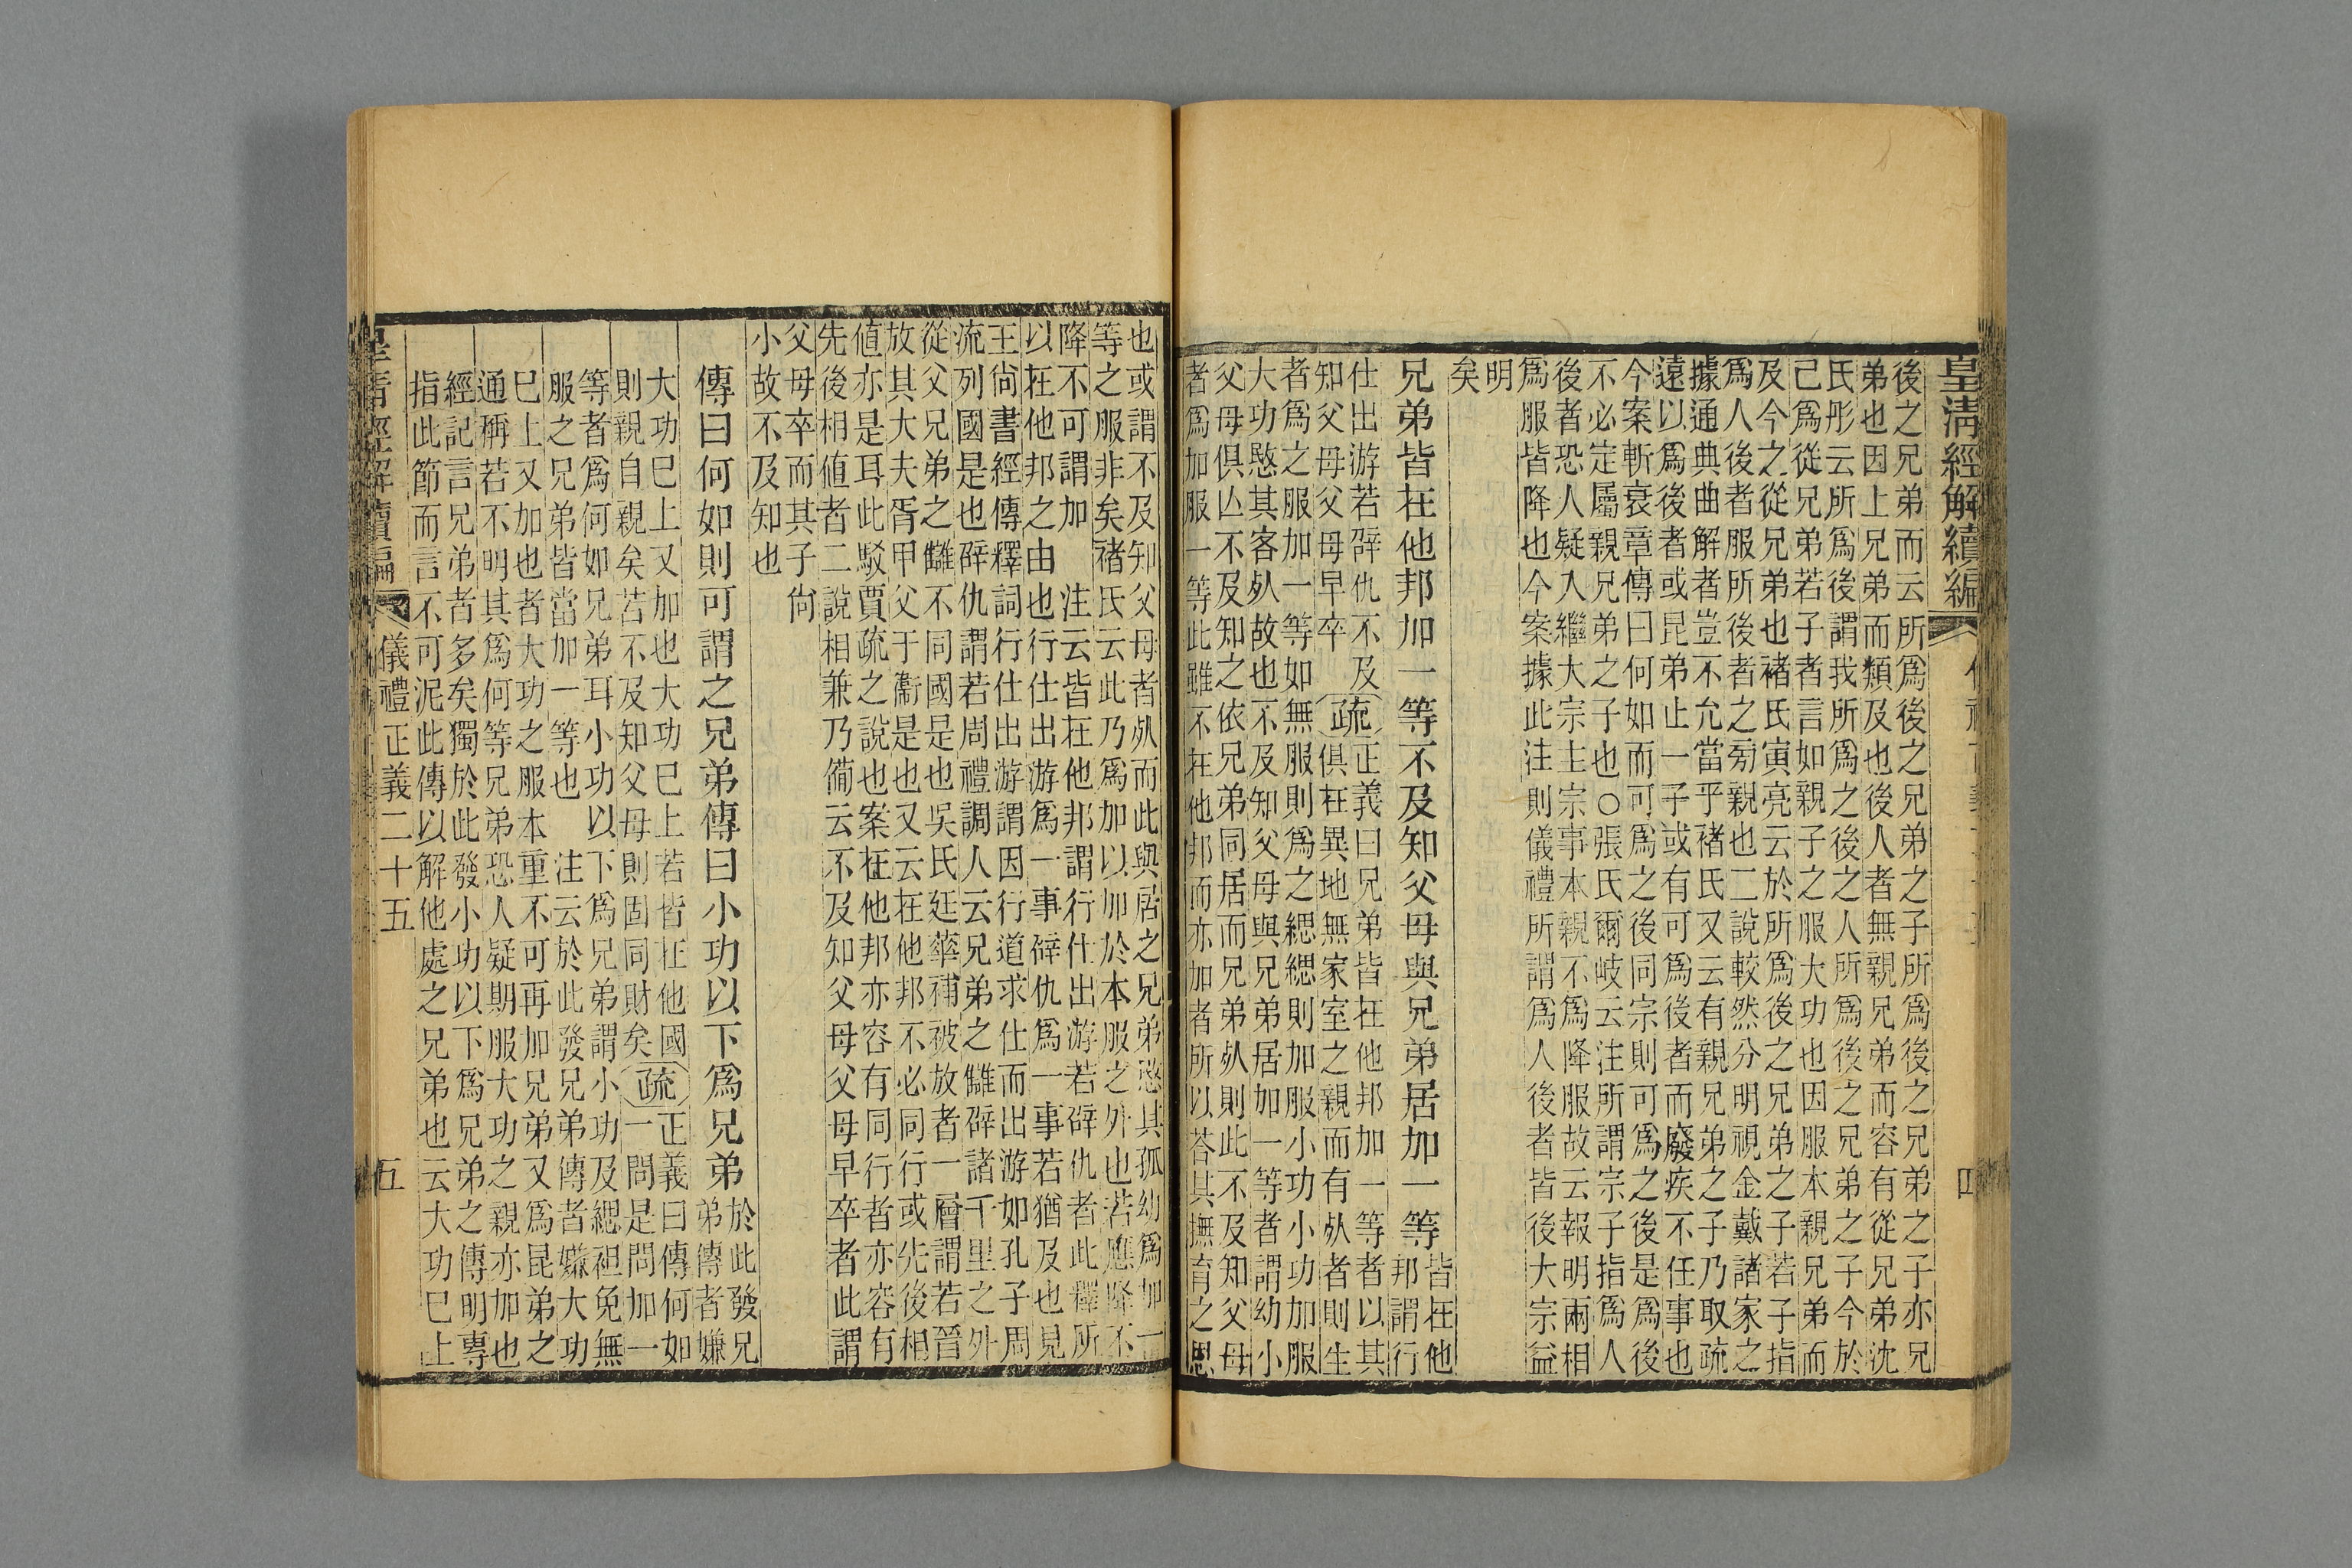 皇清經解續編
四
後之兄弟而云所爲後之兄弟之子所爲後之兄弟之子亦兄
弟也因上兄弟而類及也後人者無親兄弟而容有從兄弟沈
氏彤云所爲後謂我所爲之後之人所爲後之兄弟之子今於
己爲從兄弟若子者言如親子之服大功也因服本親兄弟而
及今之從兄弟也褚氏寅亮云於所爲後之兄弟之子若子指
爲人後者服所後者之旁親也二說較然分明視金戴諸家之
據通典曲解者豈不允當乎褚氏又云有親兄弟之子乃取疏
遠以爲後者或昆弟止一子或有可爲後者而廢疾不任事也
今案斬衰章傳曰何如而可爲之後同宗則可爲之後是爲後
不必定屬親兄弟之子也○張氏爾岐云注所謂宗子指爲人
後者恐人疑人繼大宗主宗事本親不爲降服故云報明兩相
爲服皆降也今案據此注則儀禮所謂爲人後者皆後大宗益
明
矣
兄弟皆在他邦加一等不及知父母與兄弟居加一等
皆在他
邦謂行
仕出游若辟仇不及
知父母父母早卒
疏
正義曰兄弟皆在他邦加一等者以其
俱在異地無家室之親而有死者則生
者爲之服加一等如無服則爲之緦緦則加服小功小功加服
大功愍其客死故也不及知父母與兄弟居加一等者謂幼小
父母俱亾不及知之依兄弟同居而兄弟死則此不及知父母
者爲加服一等此雖不在他邦而亦加者所以荅其撫育之恩
也或謂不及知父母者死而此與居之兄弟愍其孤幼爲加一
等之服非矣褚氏云此乃爲加以加於本服之外也若應降不
降不可謂加 注云皆在他邦謂行仕出游若辟仇者此釋所
以在他邦之由也行仕出游爲一事辟仇爲一事若猶及也見
王尙書經傳釋詞行仕出游謂因行道求仕而出游如孔子周
流列國是也辟仇謂若周禮調人云兄弟之讎辟諸千里之外
從父兄弟之讎不同國是也吳氏廷華補被放者一層謂若晉
放其大夫胥甲父于衞是也又云在他邦不必同行或先後相
値亦是耳此駁賈疏之說也案在他邦亦容有同行者亦容有
先後相値者二說相兼乃備云不及知父母父母早卒者此謂
父母卒而其子尙
小故不及知也
傳曰何如則可謂之兄弟傳曰小功以下爲兄弟
於此發兄
弟傳者嫌
大功已上又加也大功已上若皆在他國
則親自親矣若不及知父母則固同財矣
疏
正義曰傳何如
一問是問加一
等者爲何如兄弟耳小功以下爲兄弟謂小功及緦袒免無
服之兄弟皆當加一等也 注云於此發兄弟傳者嫌大功
已上又加也者大功之服本重不可再加兄弟又爲昆弟之
通稱若不明其爲何等兄弟恐人疑期服大功之親亦加也
經記言兄弟者多矣獨於此發小功以下爲兄弟之傳明專
指此節而言不可泥此傳以解他處之兄弟也云大功已上
皇清經解續編
儀禮正義二十五
五